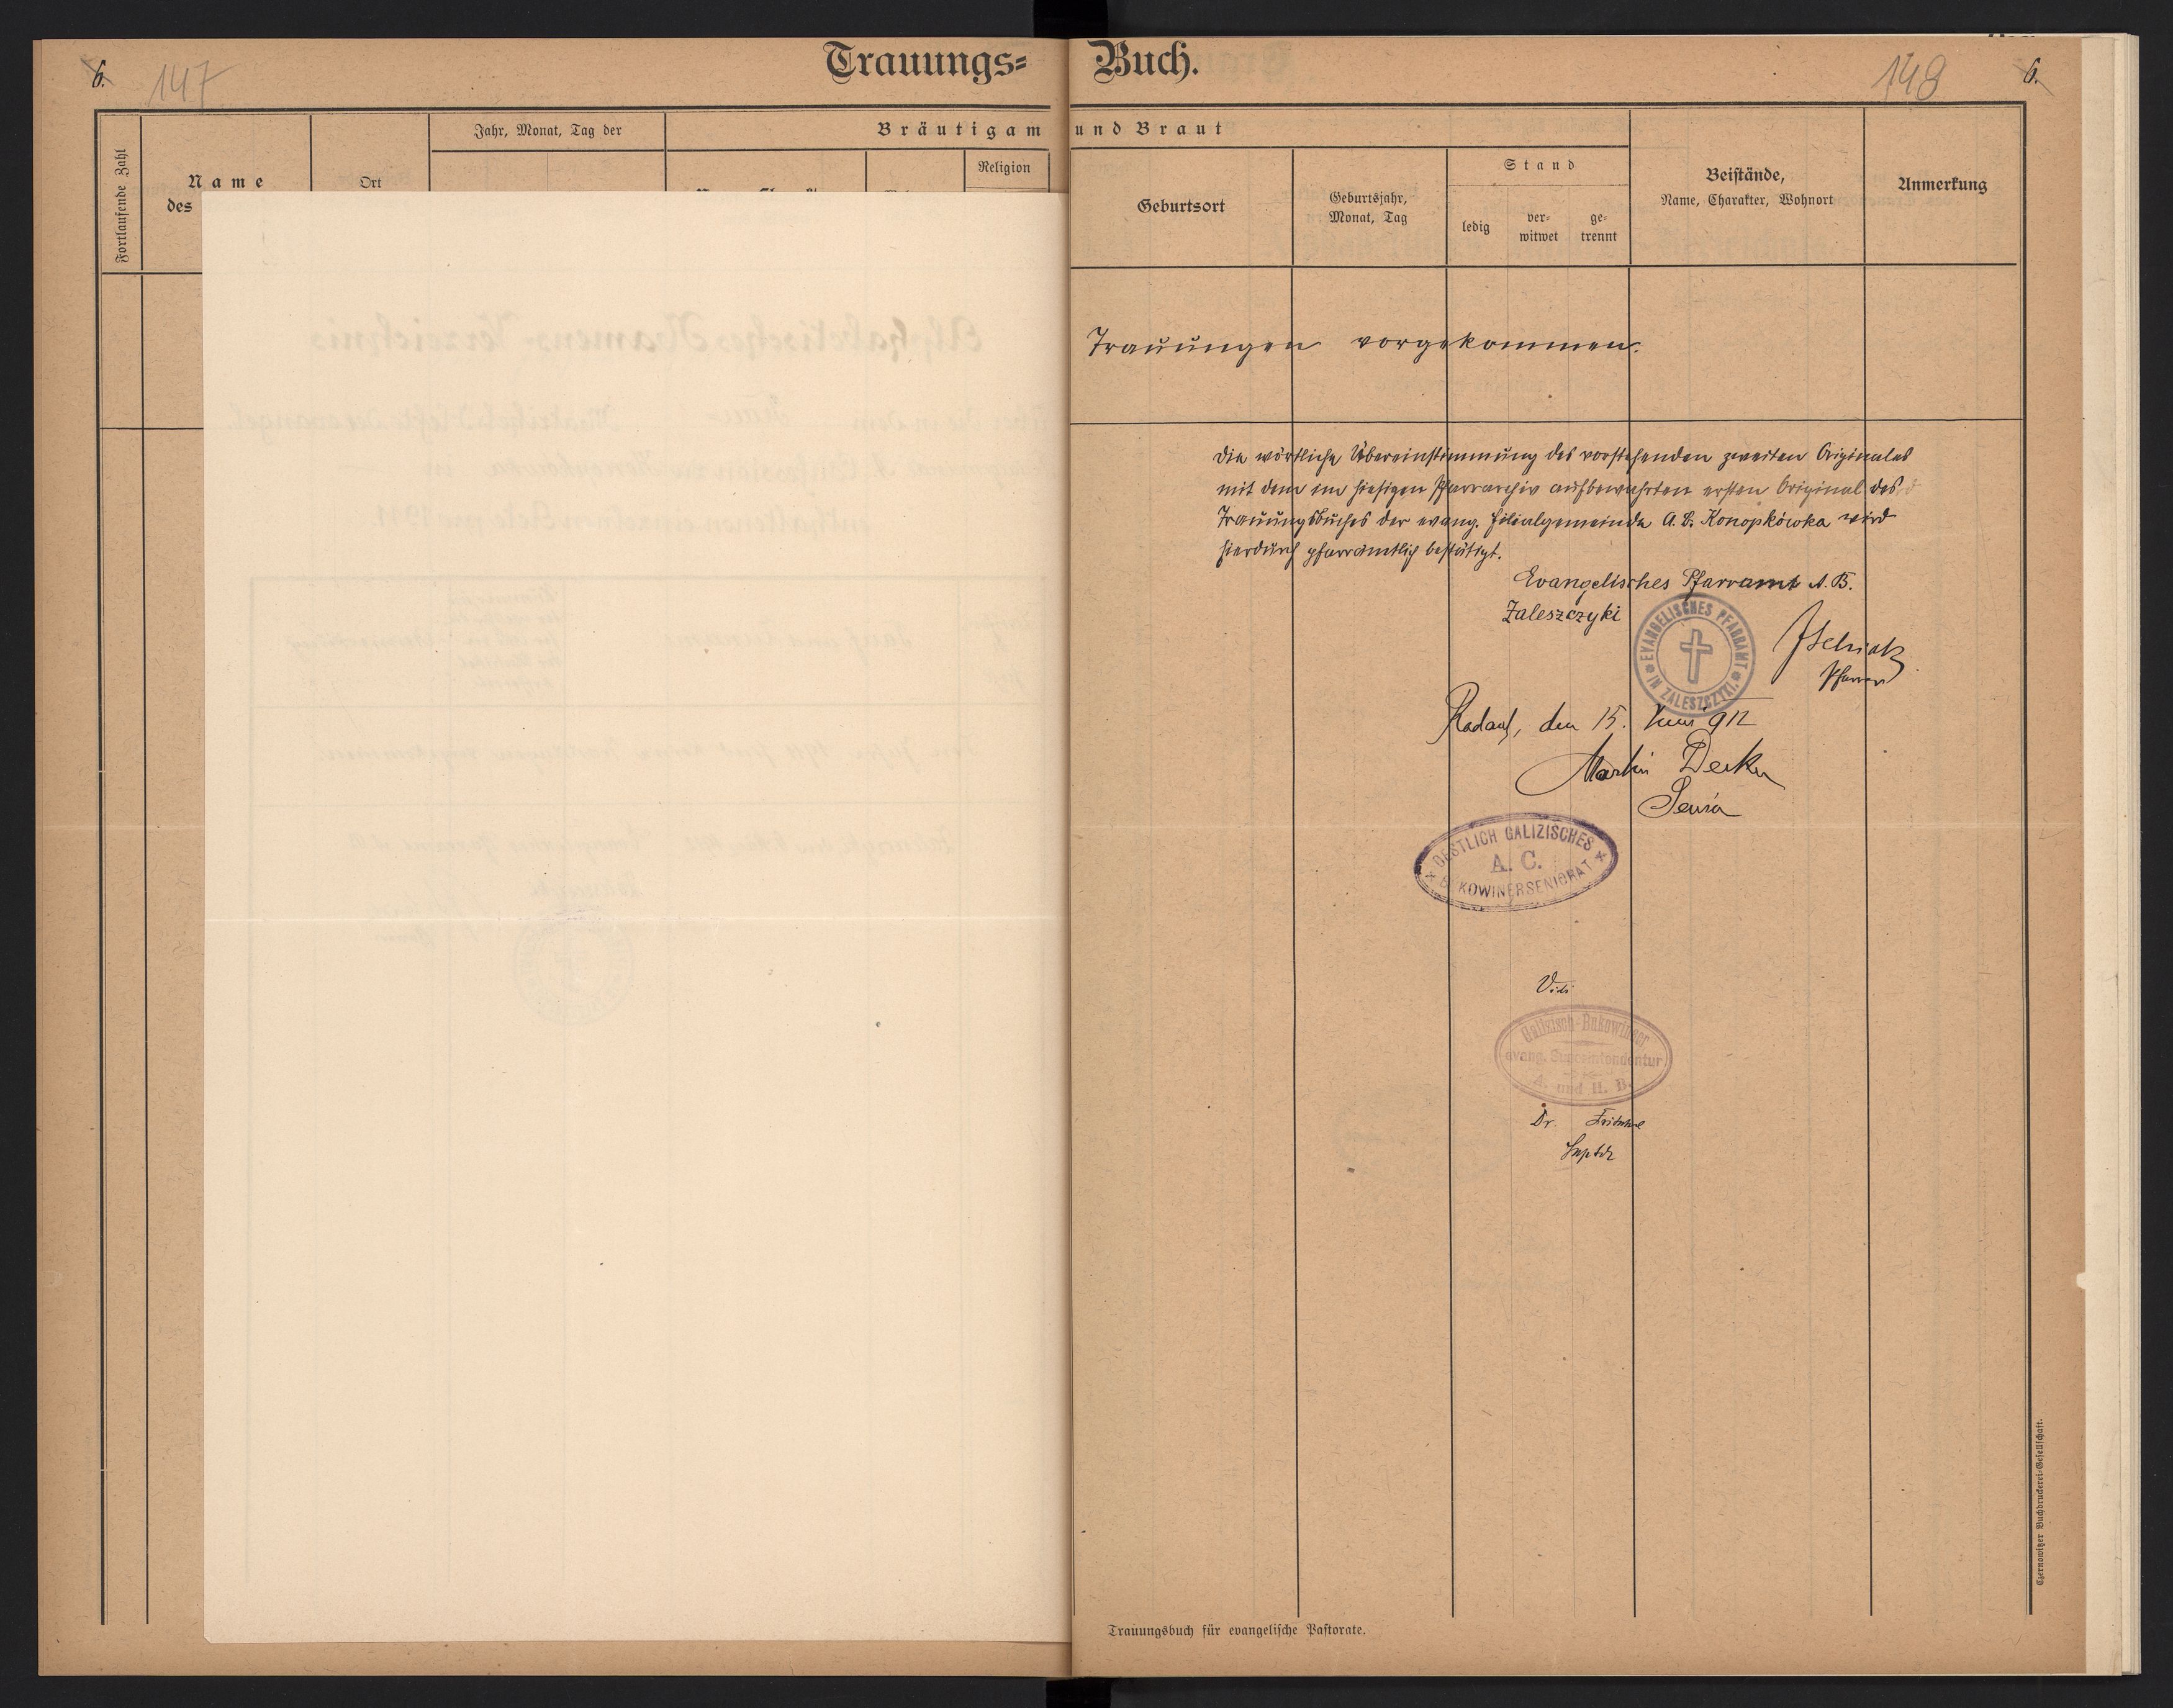 Trauungs= Buch.
6. 147
148 6.
Fortlaufende Zahl
Name
des
Ort
Jahr, Monat, Tag der
Bräutigam und Braut
Religion
Geburtsort
Geburtsjahr,
Monat, Tag
Stand
ledig
ver-
witwet
ge-
trennt
Beistände,
Name, Charakter, Wohnort
Anmerkung
Trauungen vorgekommen.
Die wörtliche Übereinstimmung des vorstehenden zweiten Originales
mit dem im hiesigen Pfarrarchiv aufbewahrten ersten Original des
Trauungsbuches der evang. Filialgemeinde A. B. Konopkówka wird
hierdurch pfarrämtlich bestätigt.
Evangelisches Pfarramt A. B.
Zaleszczyki
EVANGELISCHES PFARRAMT
IN ZALESZCZYKI.
Pfarrer
Radautz, den 15. Juni 912
Martin Decker
Senior
OESTLICH GALIZISCHES
A. C.
BUKOWINERSENIORAT
Vidi
Galizisch-Bukowinaer
evang. Superintendentur
A. und H. B.
Dr. Fritsche
Suptdt
Trauungsbuch für evangelische Pastorate.
Czernowitzer Buchdruckerei-Gesellschaft.